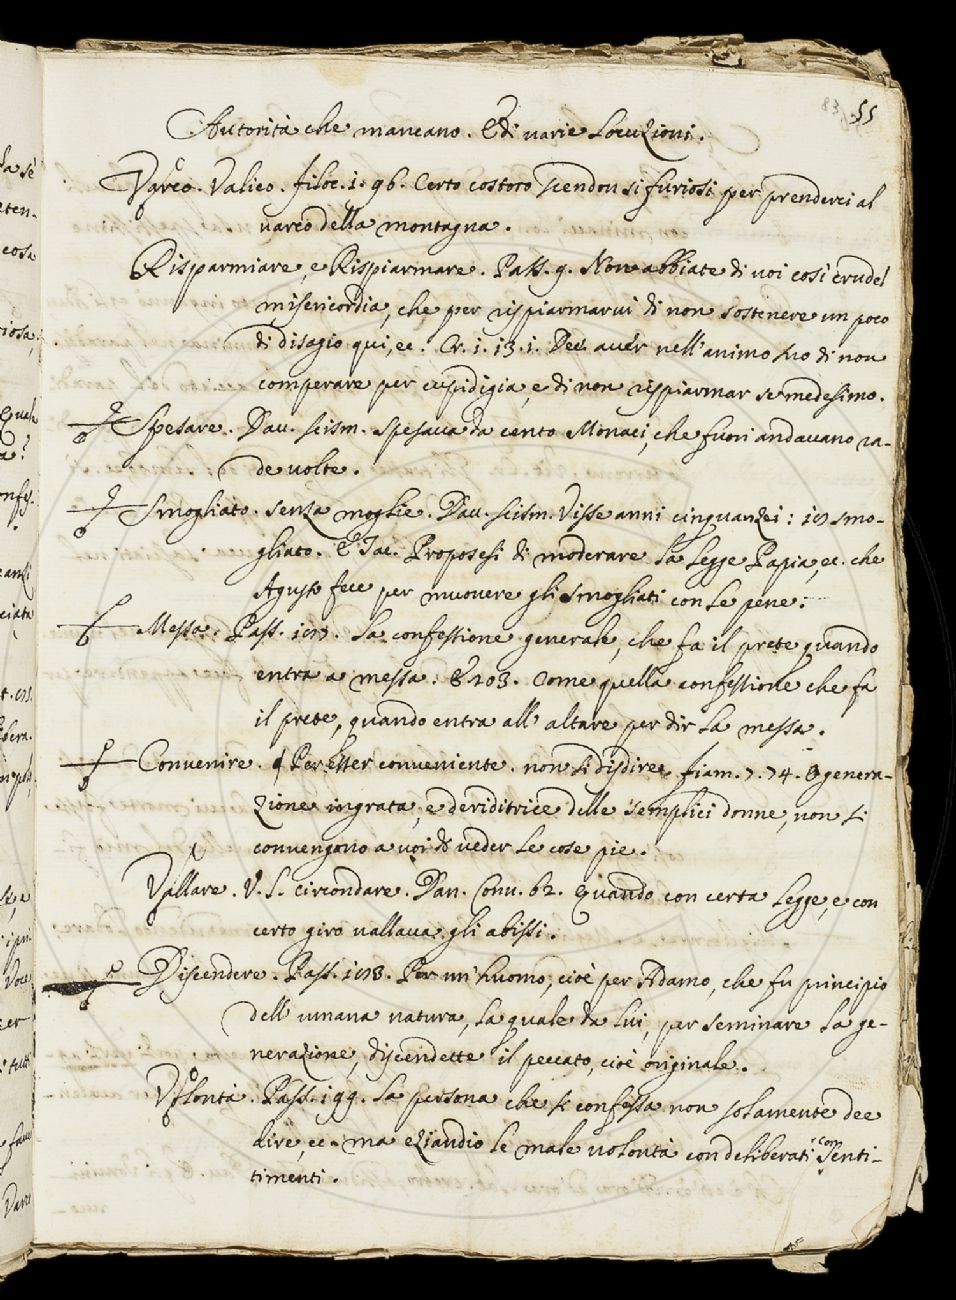 83 55
Autorità che mancano. E di varie Locuzioni.
Varco. Valico. filoc. 1. 96. Certo costoro scendon si furiosi per prenderci al
varco della montagna.
Risparmiare, e Rispiarmare. Pass. 9. Non abbiate di voi così crudel
misericordia, che per rispiarmarvi di non sostenere un poco
di disagio qui, ec. Cr. 1. 13. 1. Dee aver nell'animo suo di non
comperare per cupidigia, e di non rispiarmar se medesimo.
Spesare. Dav. scism. spesava da cento Monaci, che fuori andavano ra-
de volte.
Smogliato. senza moglie. Dav. scism. Visse anni cinquansei: 10 smo-
gliato. E Tac. Proposesi di moderare la legge Papia, ec. che
Agusto fece per muovere gli smogliati con le pene.
Messa. Pass. 103. la confessione generale, che fa il prete quando
entra a messa. E 203. Come quella confessione che fa
il prete, quando entra all'altare per dir la messa.
Convenire. Per Esser conveniente. non si disdire, fiam. 7. 74. O genera-
zione ingrata, e deriditrice delle semplici donne, non si
convengono a voi di veder le cose pie.
Vallare. V. L. circondare. Dan. Conv. 62. Quando con certa legge, e con
certo giro vallava gli abissi.
Discendere. Pass. 108. Per un'huomo, cioè per Adamo, che fu principio
dell'umana natura, la quale da lui, per seminare la ge-
nerazione, discendette il peccato, cioè originale.
Volontà. Pass. 199. la persona che si confessa non solamente dee
dire, ec. ma eziandio le male volontà con deliberati con senti-
timenti.